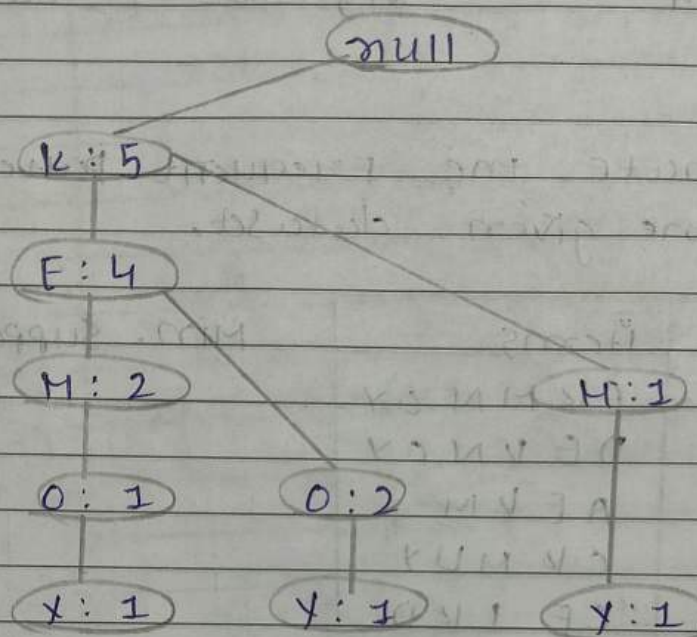 null
K : 5
E : 4
M : 2
M : 1
O : 1
O : 2
Y : 1
Y : 1
Y : 1